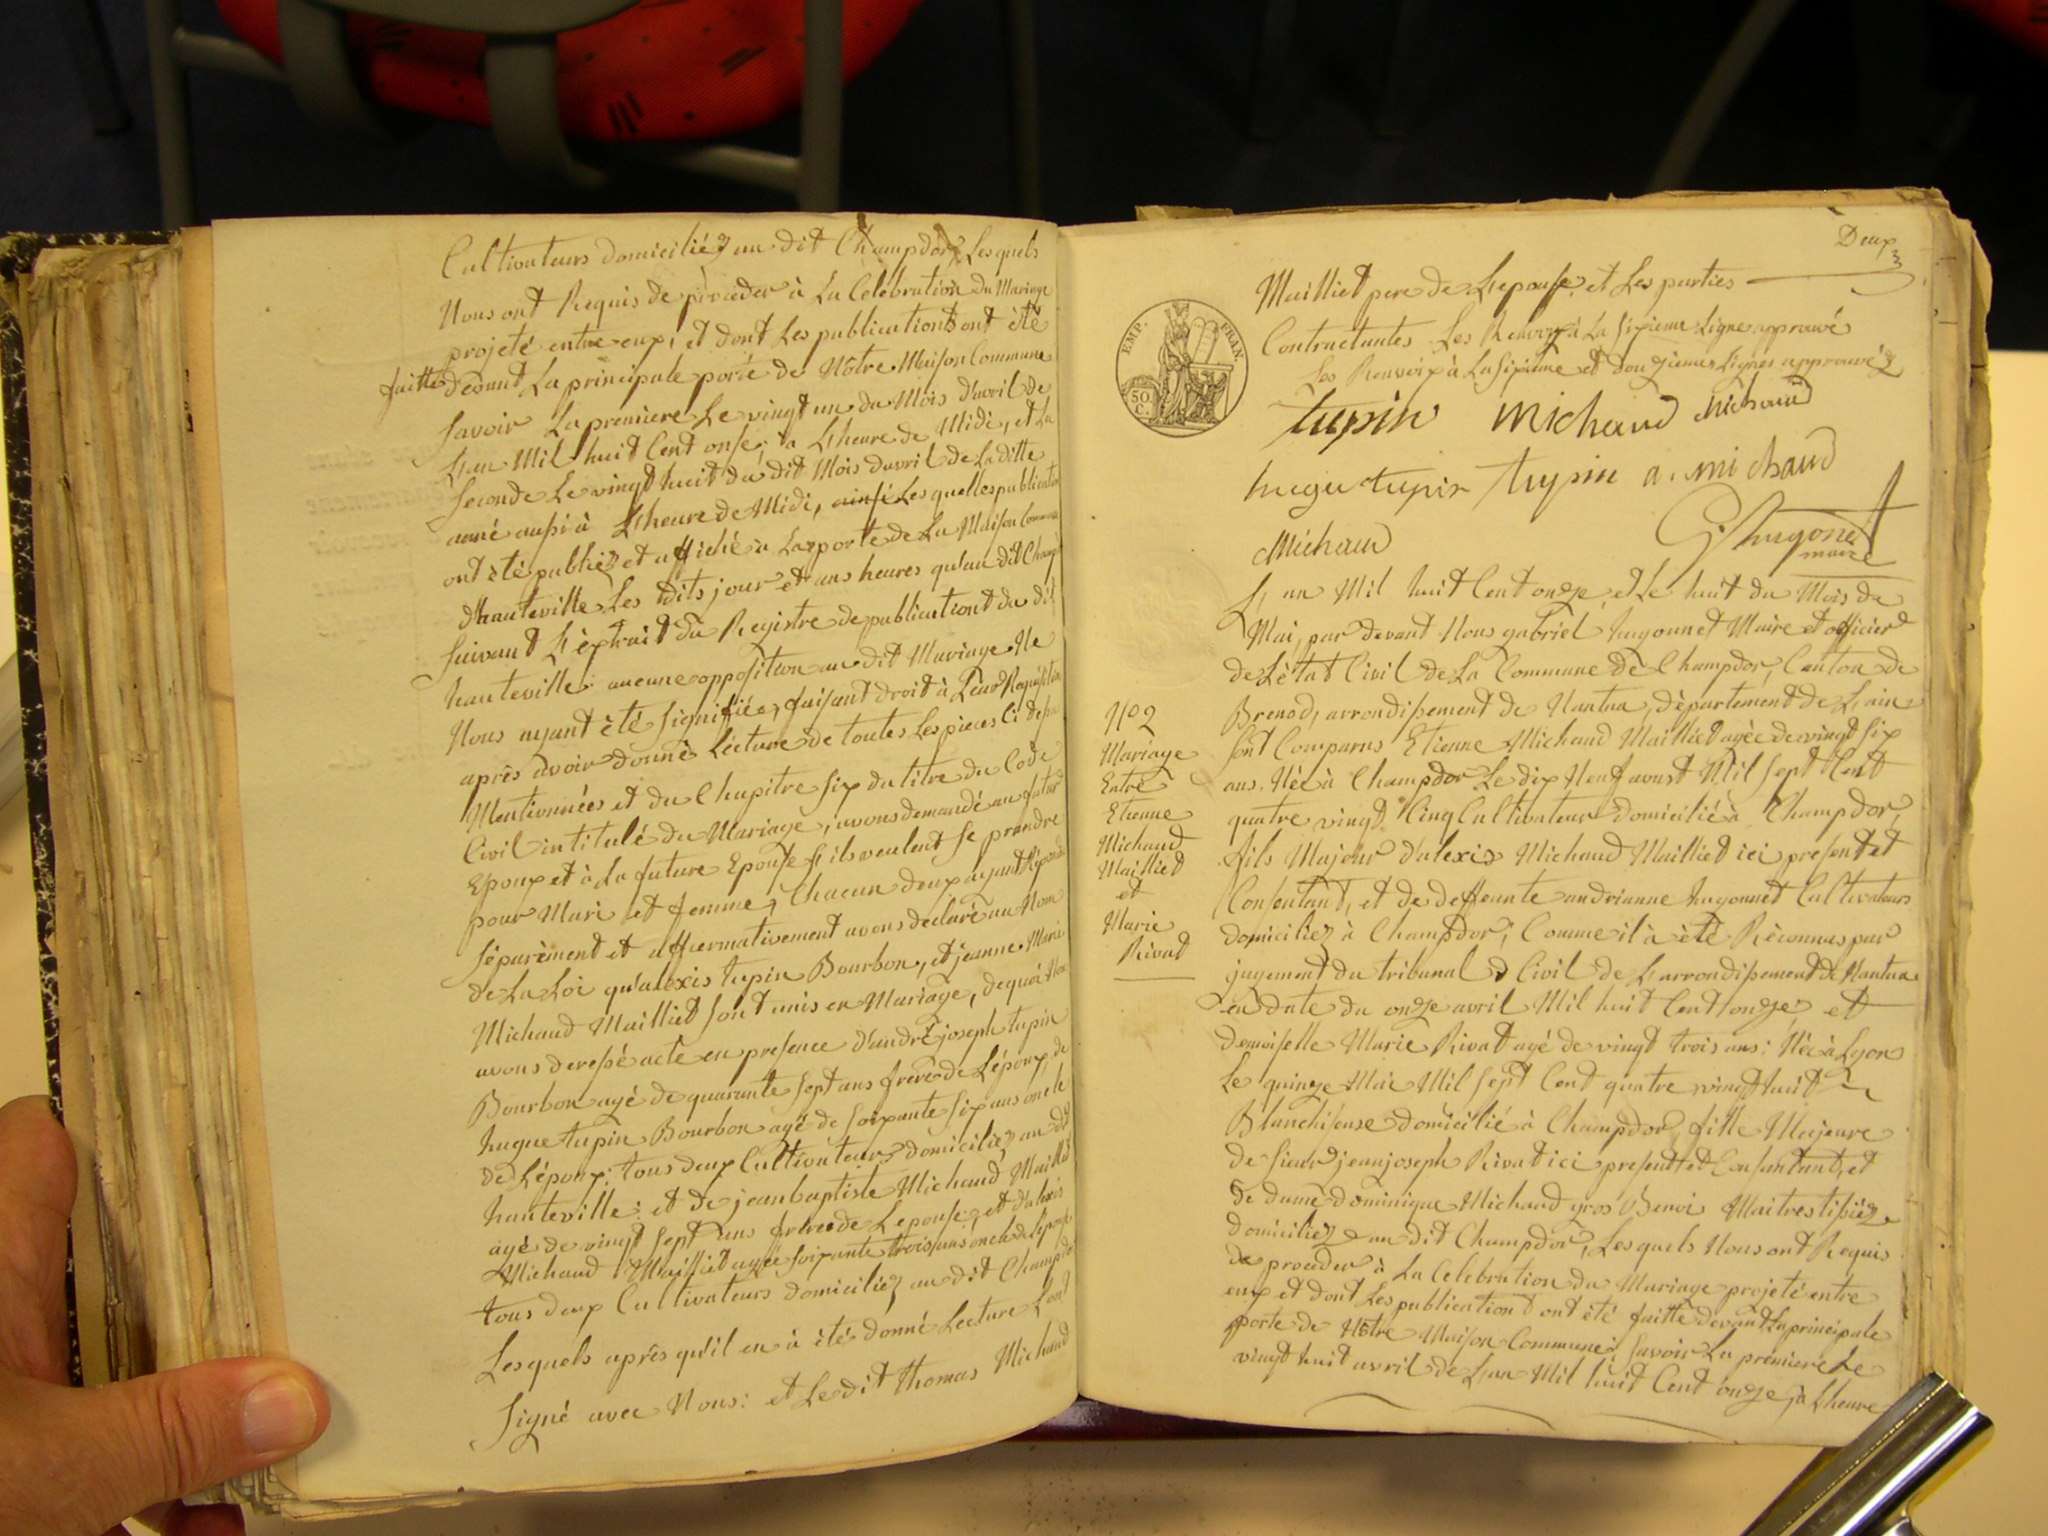 Cultivateurs domiciliéz au dit Champdor, Lesquels
Nous ont Requis de procèder à La Celebration du Mariage
projeté entre eux, et dont Les publications ont été
faitte devant La principale porte de Nôtre Maison Commune
Savoir La premiere Le vingt un du Mois d'avril de
L'an Mil huit Cent onse, à L'heure de Midi, et La
Seconde Le vingt huit du dit Mois d'avril de La ditte
anné aussi à L'heure de Midi, ainsi Les quelles publication
ont été publiéz et affiché à La porte de La Maison Commune
d'hauteville Les dits jour et aus heures qu'au dit Champ
Suivant L'éxtrait du Registre de publicationt du dit
hauteville: aucune opposition au dit Mariage Ne
Nous ayant été signifiée, faisant droit à Leur Requisition
après avoir donné Lécture de toutes Les pieces Ci dessu
Mentionnées et du Chapitre Six du titre du Code
Civil intitulé du Mariage, avons demandé au futur
Epoux et à La future Epouse S'ils veulent Se prandre
pour Mari et femme, Chacun d'eux ayant Répondu
Séparèment et affiermativement avons declaré au Nom
de La Loi qu'alexis tupin Bourbon, et jeanne Marie
Michaud Mailliet Sont unis en Mariage, dequoi Nou
avons deressé acte en presence d'andré joseph tupin
Bourbon agé de quarante Sept ans frère de L'époux, de
hugue tupin Bourbon agé de Soixante Six ans oncle
de L'époux: tous deux Cultivateurs domiciliéz au dit
hauteville: et de jean baptiste Michaud Mailliet
agé de vingt Sept ans frere de L'epouse, et d'alexis
Michaud Mailliet agée Soixante trois ans oncle de L'épouse
tous deux Cultivateurs domiciliéz au dit Champdor
Les quels après qu'il en à été donné Lecture L'ont
Signé avec Nous: et Le dit thomas Michaud
Deux
Mailliet pere de L'epouse et Les parties
Contractantes Les Renvoy à La Sixieme Ligne approuvés
Les Renvoix à La Sixieme et douzieme Lignes approuvéz
EMP. FRAN.
50 C.
tupin Michaud Michaud
hugue tupin tupin a. michaud
Michaud G. hugonet
maire
L'an Mil huit Cent onze, et Le huit du Mois de
Mai, par devant Nous gabriel hugonnet Maire et officier
de L'état Civil de La Commune de Champdor, Canton de
Brenod, arrondissement de Nantua, département de L'ain
Sont Comparus Etienne Michaud Mailliet agée de vingt Six
ans. Née à Champdor Le dix Neuf avust Mil Sept Cent
quatre vingt Cinq Cultivateur domicilié à Champdor,
fils Majeur d'alexis Michaud Mailliet ici present et
Consentant, et de deffeunte andrianne hugonnet Cultivateurs
domiciliéz à Champdor, Comme il à été Réconnus par
jugement du tribunal Civil de L'arrondissement de Nantua
en date du onze avril Mil huit Cent onze, et
demoiselle Marie Rivat agé de vingt trois ans: Née à Lyon
Le quinze Mai Mil Sept Cent quatre vingt huit
Blanchiseuse domicilié à Champdor, fille Majeure
de Sieur jean joseph Rivat ici present et Consantant, et
de dame dominique Michaud gros Benoi Maitres tisiéz
domiciliéz au dit Champdor, Les quels Nous ont Requis
de proceder à La Celebration du Mariage projeté entre
eux et dont Les publication ont été faitte devant La principale
porte de Nôtre Maison Commune, Savoir La premiere Le
vingt huit avril de L'an Mil huit Cent onze, à L'heure
No 2
Mariage
Entre
Etienne
Michaud
Mailliet
et
Marie
Rivat